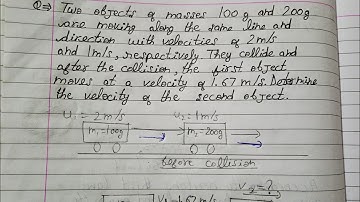 Q⇒ Two objects of masses 100g and 200g
are moving along the same line and
direction with velocities of 2m/s
and 1m/s, respectively. They collide and
after the collision, the first object
moves at a velocity of 1.67 m/s. Determine
the velocity of the second object.
U₁ = 2m/s U₂ = 1m/s
m₁=100g m₂=200g
before collision
v₂=?
1.67 m/s